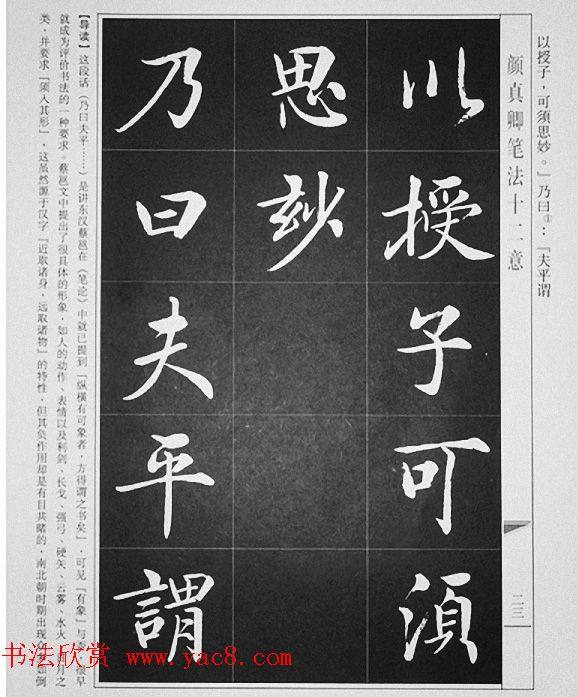 以授子，可须思妙。」乃曰①：『夫平谓
颜真卿笔法十二意
二三
以授子可須
思妙
乃曰夫平謂
【导读】这段话（乃曰夫平……）是讲东汉蔡邕在《笔论》中就已提到『纵横有可象者，方得谓之书矣』，可见『有象』与
就成为评价书法的一种要求。蔡邕文中提出了很具体的形象，如人的动作、表情以及利剑、长戈、强弓、硬矢、云雾、水火、
类，并要求『须入其形』，这虽然源于汉字『近取诸身，远取诸物』的特性，但其负作用却是有目共睹的，南北朝时期出现
书法欣赏 www.yac8.com